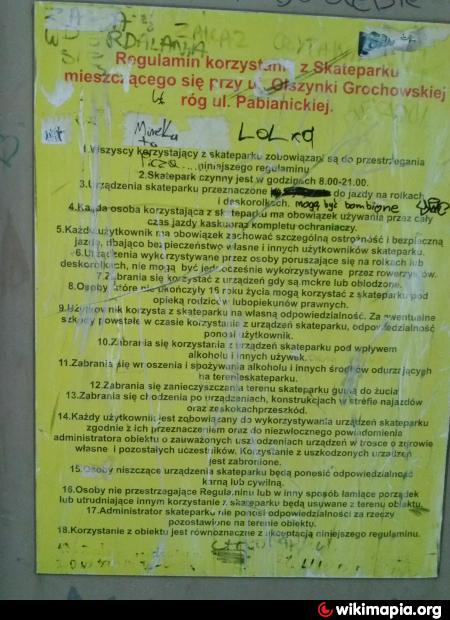 ZAKAZ CZYTANIA
Regulamin korzystania z Skateparku
mieszczącego się przy ul. Olszynki Grochowskiej
róg ul. Pabianickiej.
Mirełka
LOL
1.Wszyscy korzystający z skateparku zobowiązani są do przestrzegania
niniejszego regulaminu
2.Skatepark czynny jest w godzipach 8.00-21.00.
3.Urządzenia skateparku przeznaczone do jazdy na rolkach
i deskorolkach. mogą być bombione
4.Każda osoba korzystająca z skateparku ma obowiązek używania przez cały
czas jazdy kasku oraz kompletu ochraniaczy.
5.Każdy użytkownik ma obowiązek zachować szczególną ostrożność i bezpieczną
jazdę, dbając o bezpieczeństwo własne i innych użytkowników skateparku.
6.Urządzenia wykorzystywane przez osoby poruszające się na rolkach lub
deskorolkach, nie mogą być jednocześnie wykorzystywane przez rowerzystów.
7.Zabrania się korzystać z urządzeń gdy są mokre lub oblodzone.
8.Osoby które nie ukończyły 15 roku życia mogą korzystać z skateparku pod
opieką rodziców lubopiekunów prawnych.
9.Użytkownik korzysta z skateparku na własną odpowiedzialność. Za ewentualne
szkody powstałe w czasie korzystania z urządzeń skateparku, odpowiedzialność
ponosi użytkownik.
10.Zabrania się korzystania z urządzeń skateparku pod wpływem
alkoholu i innych używek.
11.Zabrania się wnoszenia i spożywania alkoholu i innych środków odurzających
na terenieskateparku.
12.Zabrania się zanieczyszczania terenu skateparku gumą do żucia
13.Zabrania się chodzenia po urządzeniach, konstrukcjach w strefie najazdów
oraz zeskokachprzeszkód.
14.Każdy użytkownik jest zobowiązany do wykorzystywania urządzeń skateparku
zgodnie z ich przeznaczeniem oraz do niezwłocznego powiadomienia
administratora obiektu o zauważonych uszkodzeniach urządzeń w trosce o zdrowie
własne i pozostałych uczestników. Korzystanie z uszkodzonych urządzeń
jest zabronione.
15.Osoby niszczące urządzenia skateparku będą ponosić odpowiedzialność
karną lub cywilną.
16.Osoby nie przestrzagające Regulaminu lub w inny sposób łamiące porządek
lub utrudniające innym korzystanie z skateparku będą usuwane z terenu obiektu.
17.Administrator skateparku nie ponosi odpowiedzialności za rzeczy
pozostawione na terenie obiektu.
18.Korzystanie z obiektu jest równoznaczne z akceptacją niniejszego regulaminu.
wikimapia.org